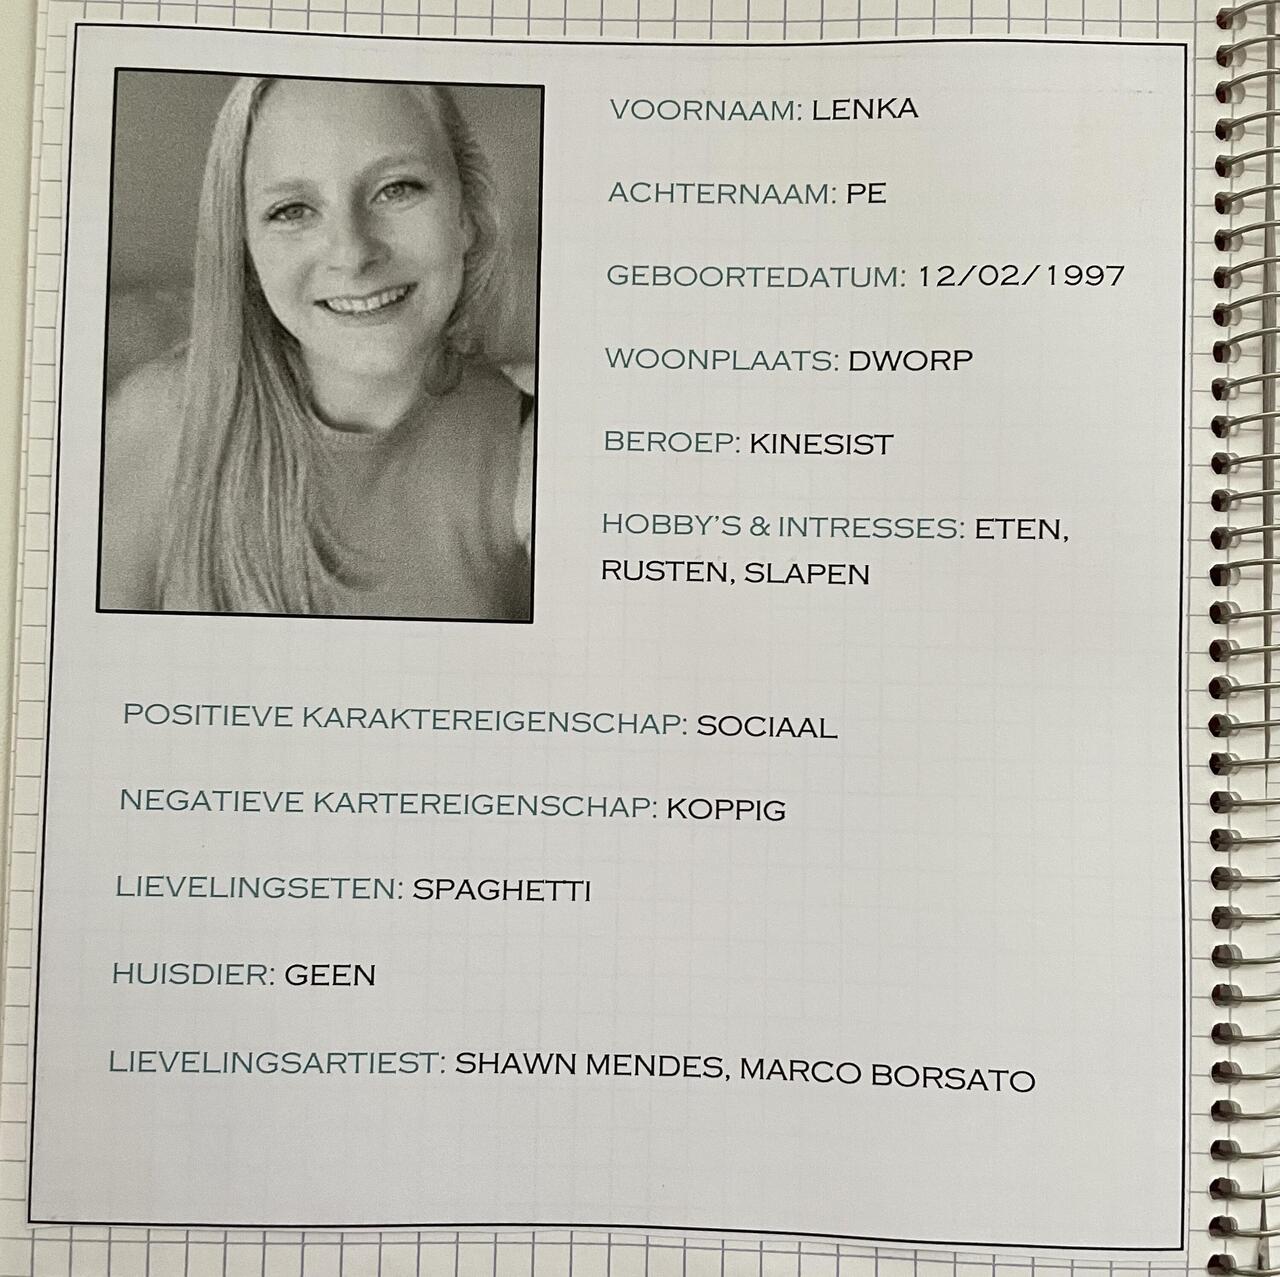 VOORNAAM: LENKA
ACHTERNAAM: PE
GEBOORTEDATUM: 12/02/1997
WOONPLAATS: DWORP
BEROEP: KINESIST
HOBBY'S & INTRESSES: ETEN,
RUSTEN, SLAPEN
POSITIEVE KARAKTEREIGENSCHAP: SOCIAAL
NEGATIEVE KARTEREIGENSCHAP: KOPPIG
LIEVELINGSETEN: SPAGHETTI
HUISDIER: GEEN
LIEVELINGSARTIEST: SHAWN MENDES, MARCO BORSATO